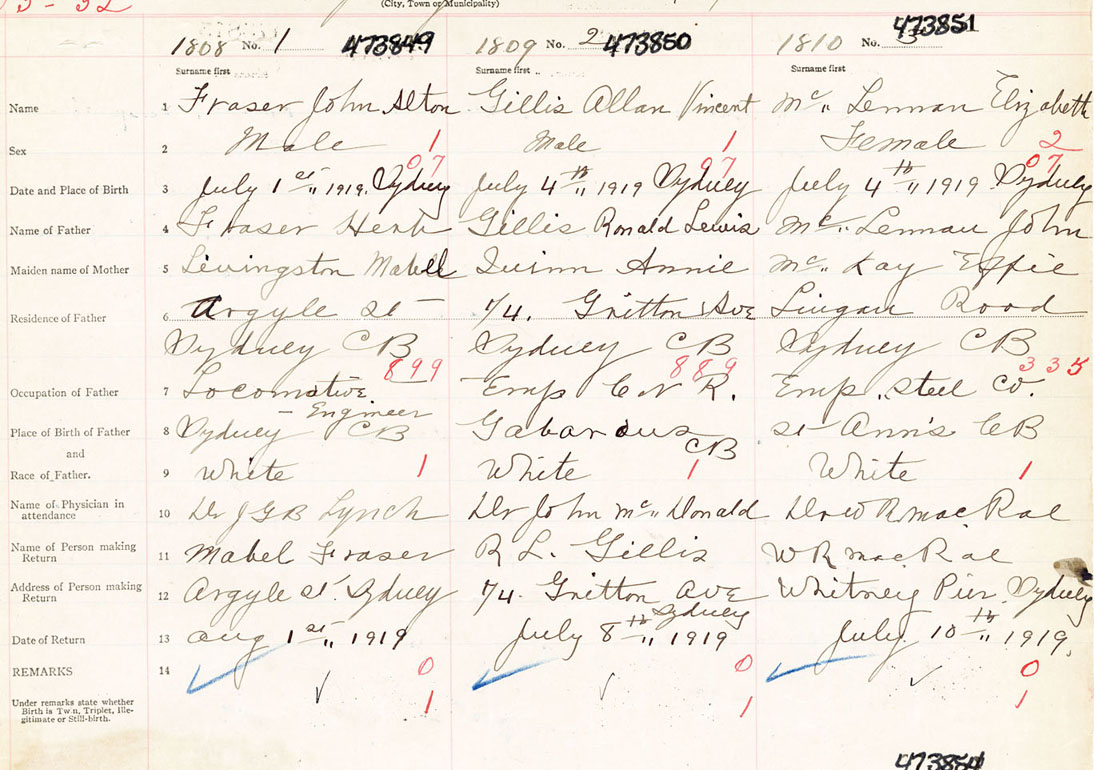 (City, Town or Municipality)
1808 No. 1 473849 1809 No. 2 473850 1810 No. 3 473851
Surname first Surname first Surname first
Name 1 Fraser John Alton Gillis Allan Vincent Mc„ Lennan Elizabeth
Sex 2 Male 1 Male 1 Female 2
07 97 07
Date and Place of Birth 3 July 1st„ 1919. Sydney July 4th„ 1919 Sydney July 4th„ 1919 Sydney
Name of Father 4 Fraser Herb Gillis Ronald Lewis Mc„ Lennan John
Maiden name of Mother 5 Livingston Mabell Quinn Annie Mc„ Kay Effie
Residence of Father 6 Argyle St 74. Gritton Ave Lingan Road
Sydney CB Sydney CB Sydney CB
899 889 335
Occupation of Father 7 Locomotive Emp C N R. Emp. Steel Co.
- Engineer
Place of Birth of Father 8 Sydney CB Gabarous CB St Ann's CB
and
Race of Father. 9 White 1 White 1 White 1
Name of Physician in
attendance 10 Dr J G B Lynch Dr John Mc„ Donald Dr W R MacRae
Name of Person making
Return 11 Mabel Fraser R L. Gillis W R MacRae
Address of Person making
Return 12 Argyle St. Sydney 74. Gritton Ave Sydney Whitney Pier Sydney
Date of Return 13 Aug 1st„ 1919 July 8th„ 1919 July 10th„ 1919.
REMARKS 14 0 0 0
Under remarks state whether
Birth is Twin, Triplet, Ille-
gitimate or Still-birth. 1 1 1
473854